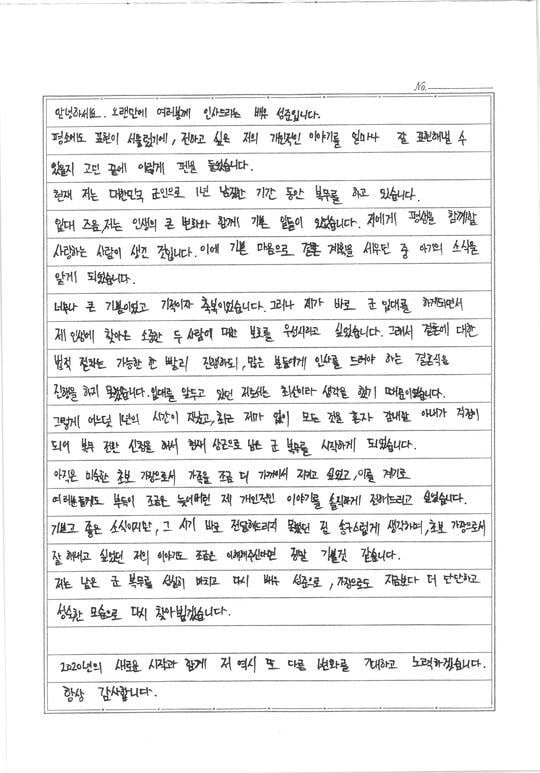 No.
안녕하세요. 오랜만에 여러분께 인사드리는 배우 성준입니다.
평소에도 표현이 서툴렀기에, 전하고 싶은 저의 개인적인 이야기를 얼마나 잘 표현해낼 수
있을지 고민 끝에 이렇게 펜을 들었습니다.
현재 저는 대한민국 군인으로 1년 남짓한 기간 동안 복무를 하고 있습니다.
입대 즈음, 저는 인생의 큰 변화와 함께 기쁜 일들이 있었습니다. 저에게 평생을 함께할
사랑하는 사람이 생긴 것입니다. 이에 기쁜 마음으로 결혼 계획을 세우던 중 아기의 소식을
알게 되었습니다.
너무나 큰 기쁨이었고 기적이자 축복이었습니다. 그러나 제가 바로 군 입대를 하게되면서
제 인생에 찾아온 소중한 두 사람에 대한 보호를 우선시하고 싶었습니다. 그래서 결혼에 대한
법적 절차는 가능한 한 빨리 진행하되, 많은 분들에게 인사를 드려야 하는 결혼식을
진행을 하지 못했습니다. 입대를 앞두고 있던 저로서는 최선이라 생각을 했기 때문이었습니다.
그렇게 어느덧 1년의 시간이 지났고, 최근 저마 없이 모든 것을 혼자 감내할 아내가 걱정이
되어 복무 전환 신청을 해서 현재 상근으로 남은 군 복무를 시작하게 되었습니다.
아직은 미숙한 초보 가장으로서 가족을 조금 더 가까이서 지키고 싶었고, 이를 계기로
여러분들께도 부득이 조금은 늦어버린 제 개인적인 이야기를 솔직하게 전해드리고 싶었습니다.
기쁘고 좋은 소식이지만, 그 시기 바로 전달해드리지 못했던 점 송구스럽게 생각하며, 초보 가장으로서
잘 해내고 싶었던 저의 이야기도 조금은 이해해주신다면 정말 기쁠것 같습니다.
저는 남은 군 복무를 성실히 마치고 다시 배우 성준으로, 가장으로도 지금보다 더 단단하고
성숙한 모습으로 다시 찾아뵙겠습니다.
2020년의 새로운 시작과 함께 저 역시 또 다를 변화를 기대하고 노력하겠습니다.
항상 감사합니다.